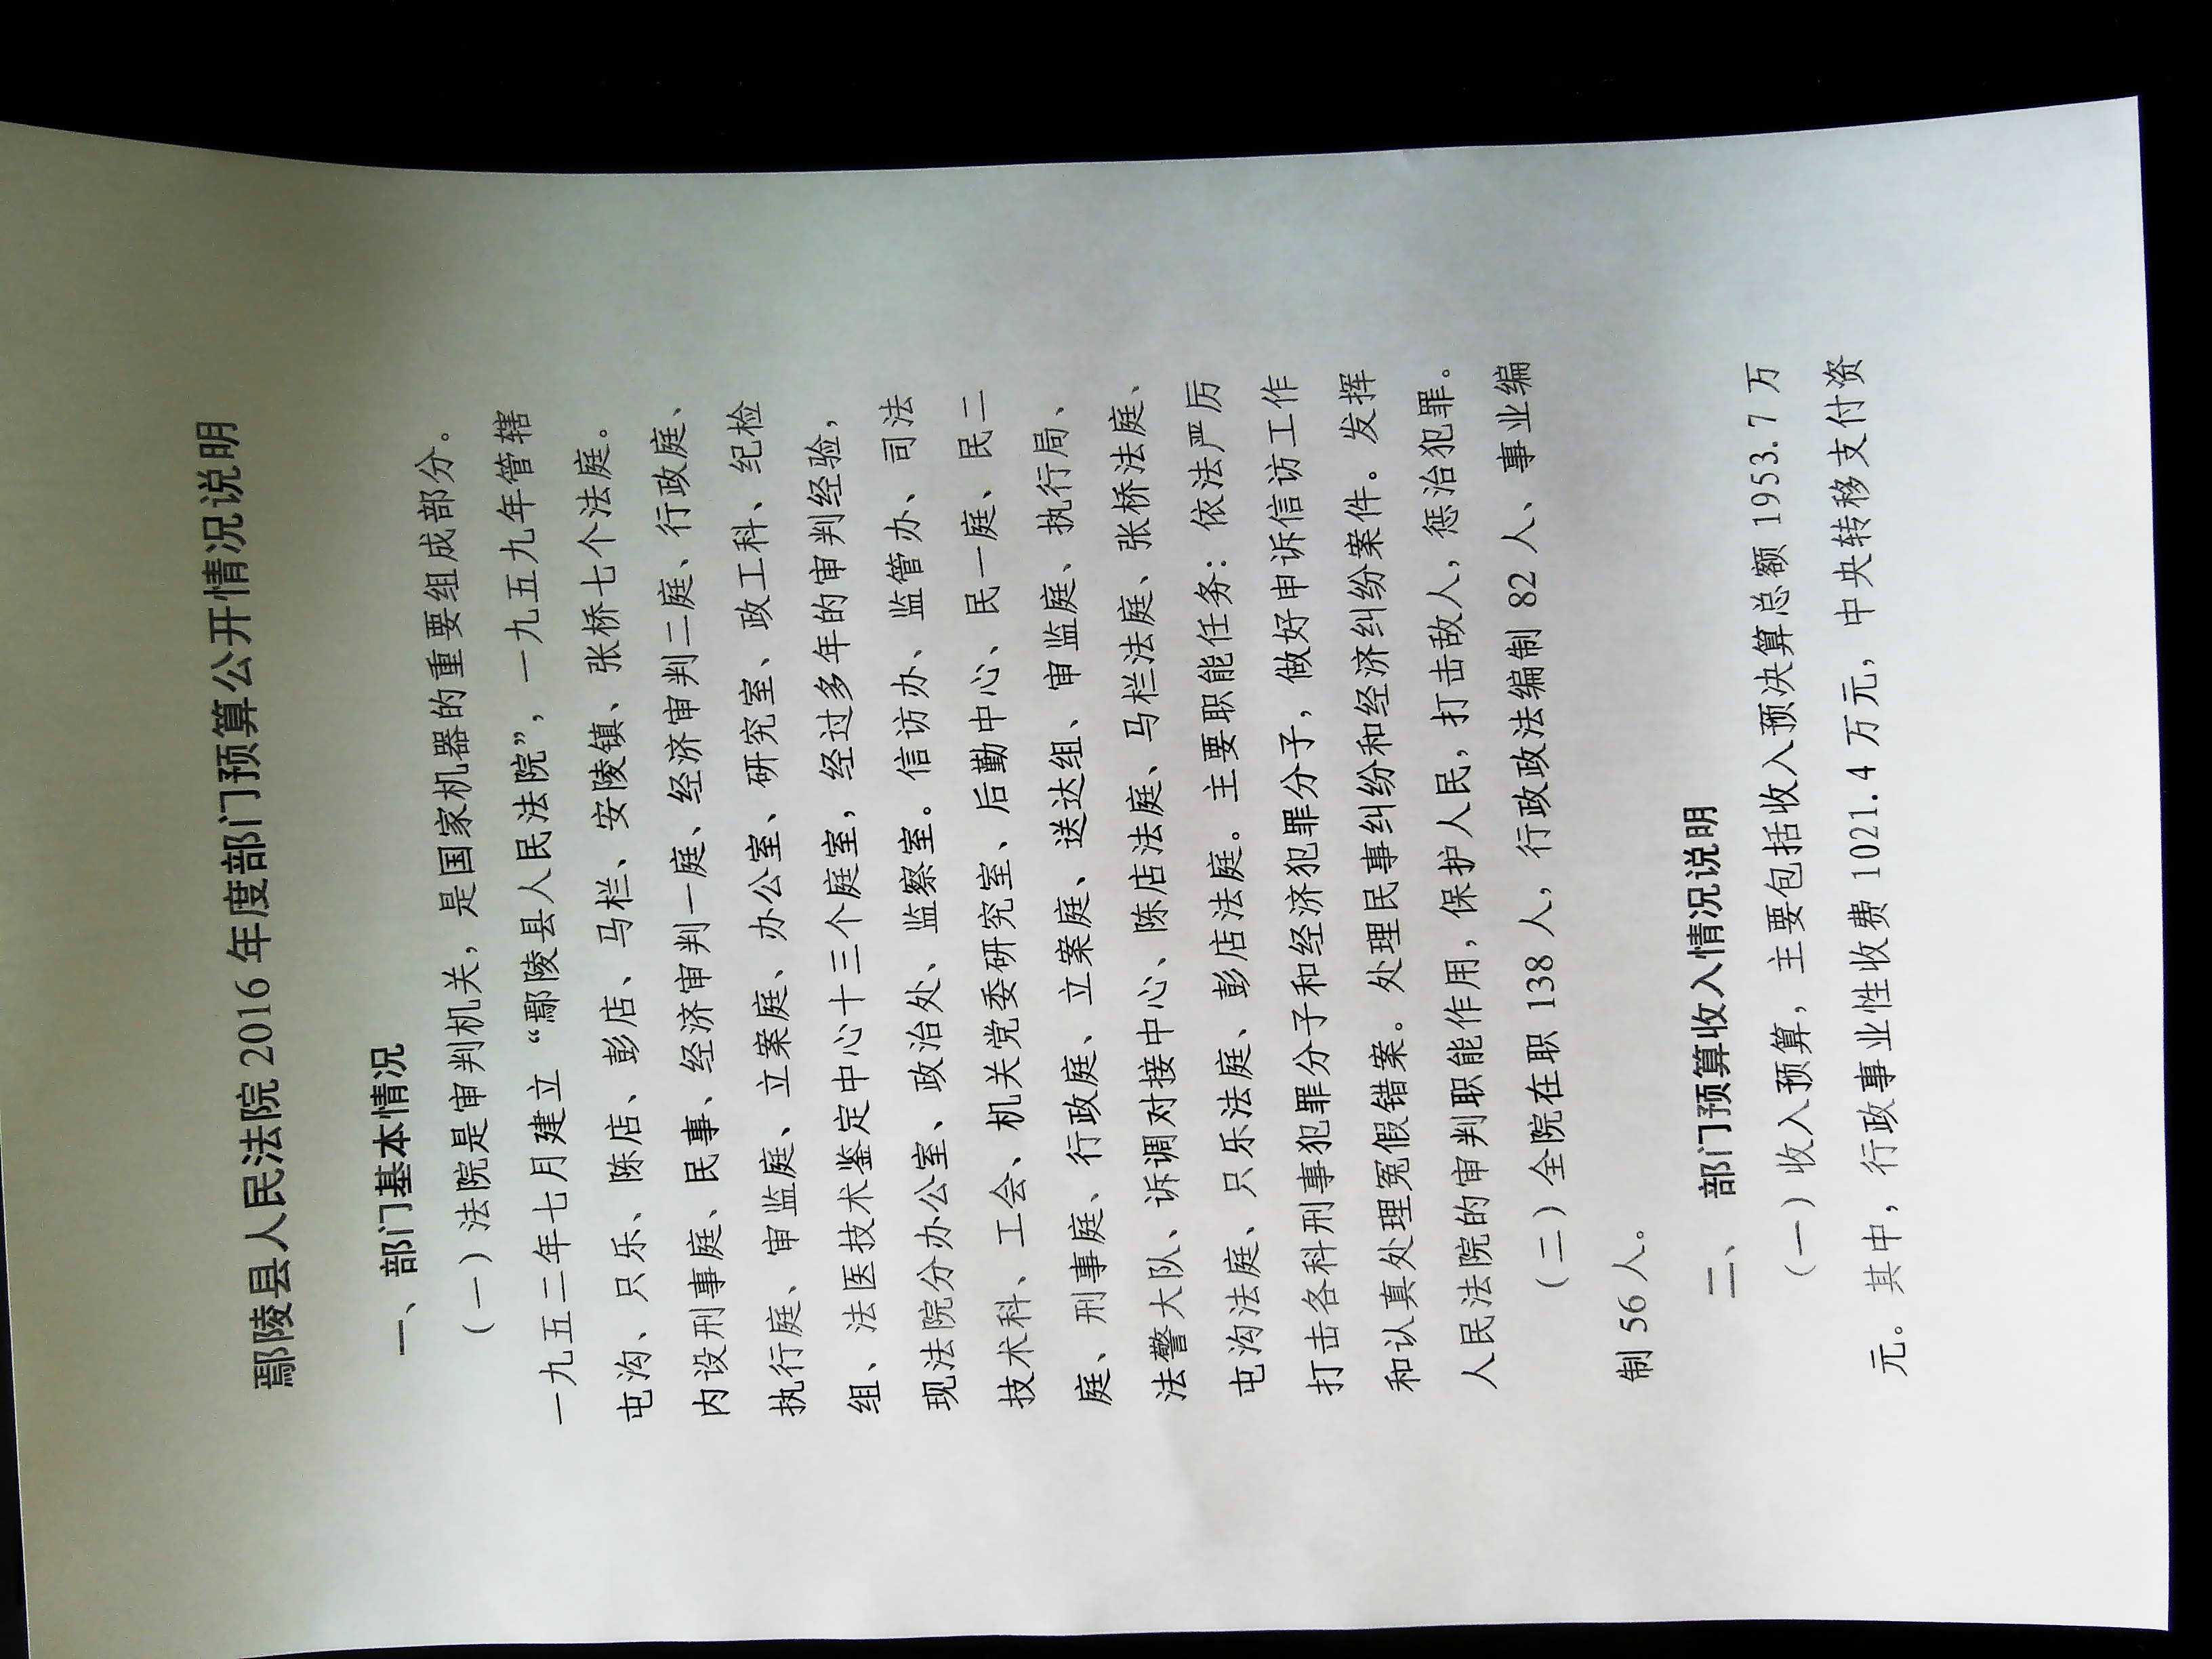 鄢陵县人民法院 2016 年度部门预算公开情况说明
一、部门基本情况
（一）法院是审判机关，是国家机器的重要组成部分。
一九五二年七月建立“鄢陵县人民法院”，一九五九年管辖
屯沟、只乐、陈店、彭店、马栏、安陵镇、张桥七个法庭。
内设刑事庭、民事、经济审判一庭、经济审判二庭、行政庭、
执行庭、审监庭、立案庭、办公室、研究室、政工科、纪检
组、法医技术鉴定中心十三个庭室，经过多年的审判经验，
现法院分办公室、政治处、监察室。信访办、监管办、司法
技术科、工会、机关党委研究室、后勤中心、民一庭、民二
庭、刑事庭、行政庭、立案庭、送达组、审监庭、执行局、
法警大队、诉调对接中心、陈店法庭、马栏法庭、张桥法庭、
屯沟法庭、只乐法庭、彭店法庭。主要职能任务：依法严厉
打击各科刑事犯罪分子和经济犯罪分子，做好申诉信访工作
和认真处理冤假错案。处理民事纠纷和经济纠纷案件。发挥
人民法院的审判职能作用，保护人民，打击敌人，惩治犯罪。
（二）全院在职 138 人，行政政法编制 82 人、事业编
制 56 人。
二、 部门预算收入情况说明
（一）收入预算，主要包括收入预决算总额 1953.7 万
元。其中，行政事业性收费 1021.4 万元，中央转移支付资